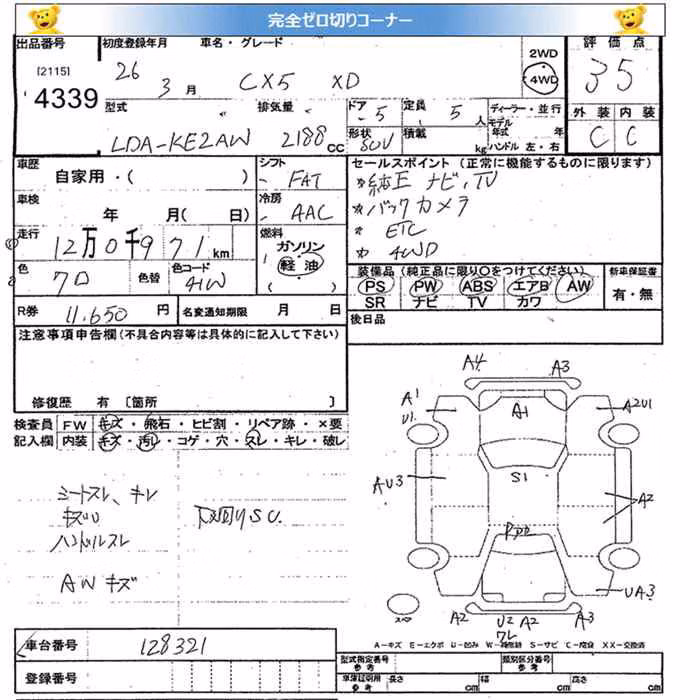 完全ゼロ切りコーナー
出品番号 初度登録年月 車名・グレード 評価点
[2115] 4339 26 3月 CX5 XD 2WD 4WD 35
型式 排気量 ドア 5 定員 5人 ディーラー・並行 外装 内装
モデル年式 年
LDA-KE2AW 2188cc 形状 SUV 積載 kg ハンドル 左・右 C C
車歴 シフト セールスポイント (正常に機能するものに限ります)
自家用・( ) FAT *純正ナビ,TV
車検 冷房 *バックカメラ
年 月(日) AAC * ETC
走行 燃料 * 4WD
12万0千971km ガソリン
軽油
( )
色 色替 色コード 装備品 (純正品に限り○をつけてください) 新車保証書
クロ 41W PS PW ABS エアB AW 有・無
SR ナビ TV カワ
R券 11,650円 名変通知期限 月 日 後日品
注意事項申告欄(不具合内容等は具体的に記入して下さい)
修復歴 有 〔箇所 〕
検査員 FW キズ・飛石・ヒビ割・リペア跡・×要
記入欄 内装 キズ・汚レ・コゲ・穴・スレ・キレ・破レ
シートスレ、キレ
キズU
ハンドルスレ
下廻りSU.
AWキズ
A4 A3
A1 U1 A1 A2U1
AU3 S1 A2
UA3
スペア
A2 U2 A2 A3
ワレ
A-キズ E-エクボ U-凹み W-補修跡 S-サビ C-腐食 XX-交換済
車台番号 128321
登録番号
型式指定番号 参考 類別区分番号 参考
車庫証明用 参考 長さ cm 幅 cm 高さ cm